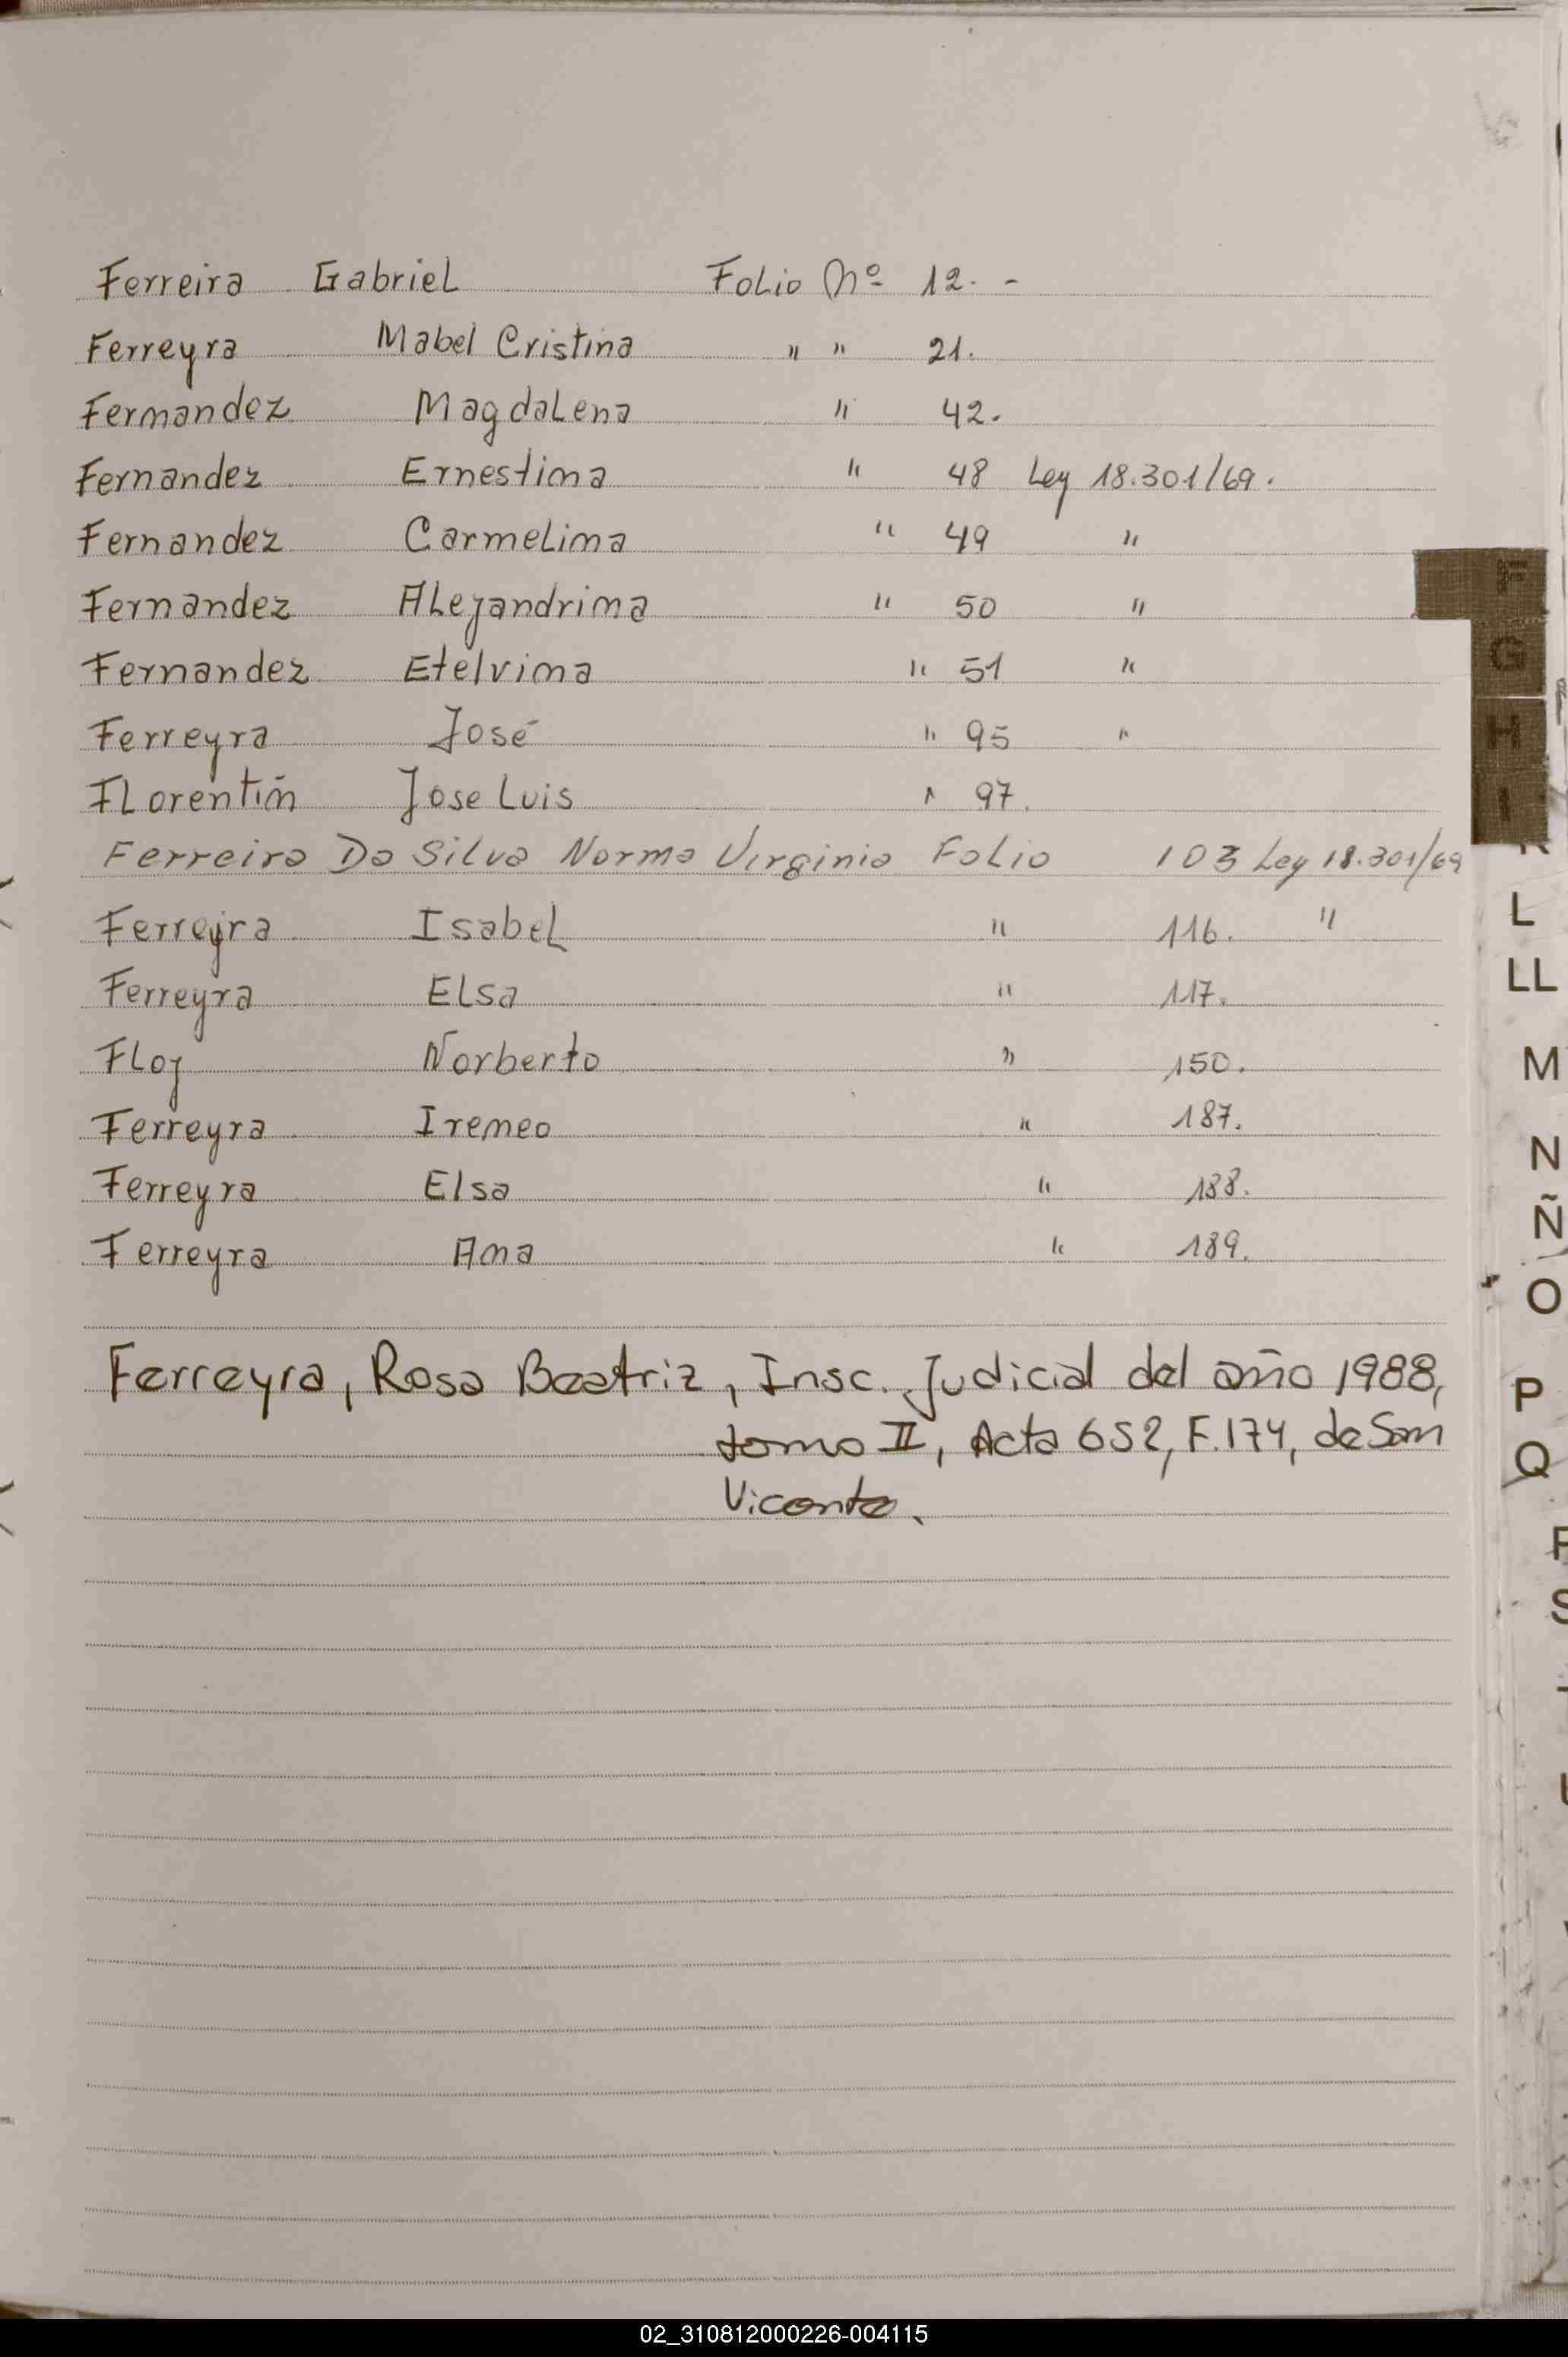 Ferreira Gabriel Folio Nº 12. -
Ferreyra Mabel Cristina " " 21.
Fernandez Magdalena " 42.
Fernandez Ernestina " 48 Ley 18.301/69.
Fernandez Carmelina " 49 "
Fernandez Alejandrina " 50 "
Fernandez Etelvina " 51 "
Ferreyra José " 95 "
Florentín Jose Luis " 97.
Ferreira Da Silva Norma Virginia Folio 103 Ley 18.301/69
Ferreyra Isabel " 116. "
Ferreyra Elsa " 117.
Floj Norberto " 150.
Ferreyra Ireneo " 187.
Ferreyra Elsa " 188.
Ferreyra Ana " 189.
Ferreyra, Rosa Beatriz, Insc. Judicial del año 1988,
tomo II, Acta 652, F.174, de San
Vicente.
F
G
H
I
L
LL
M
N
Ñ
O
P
Q
S
02_310812000226-004115